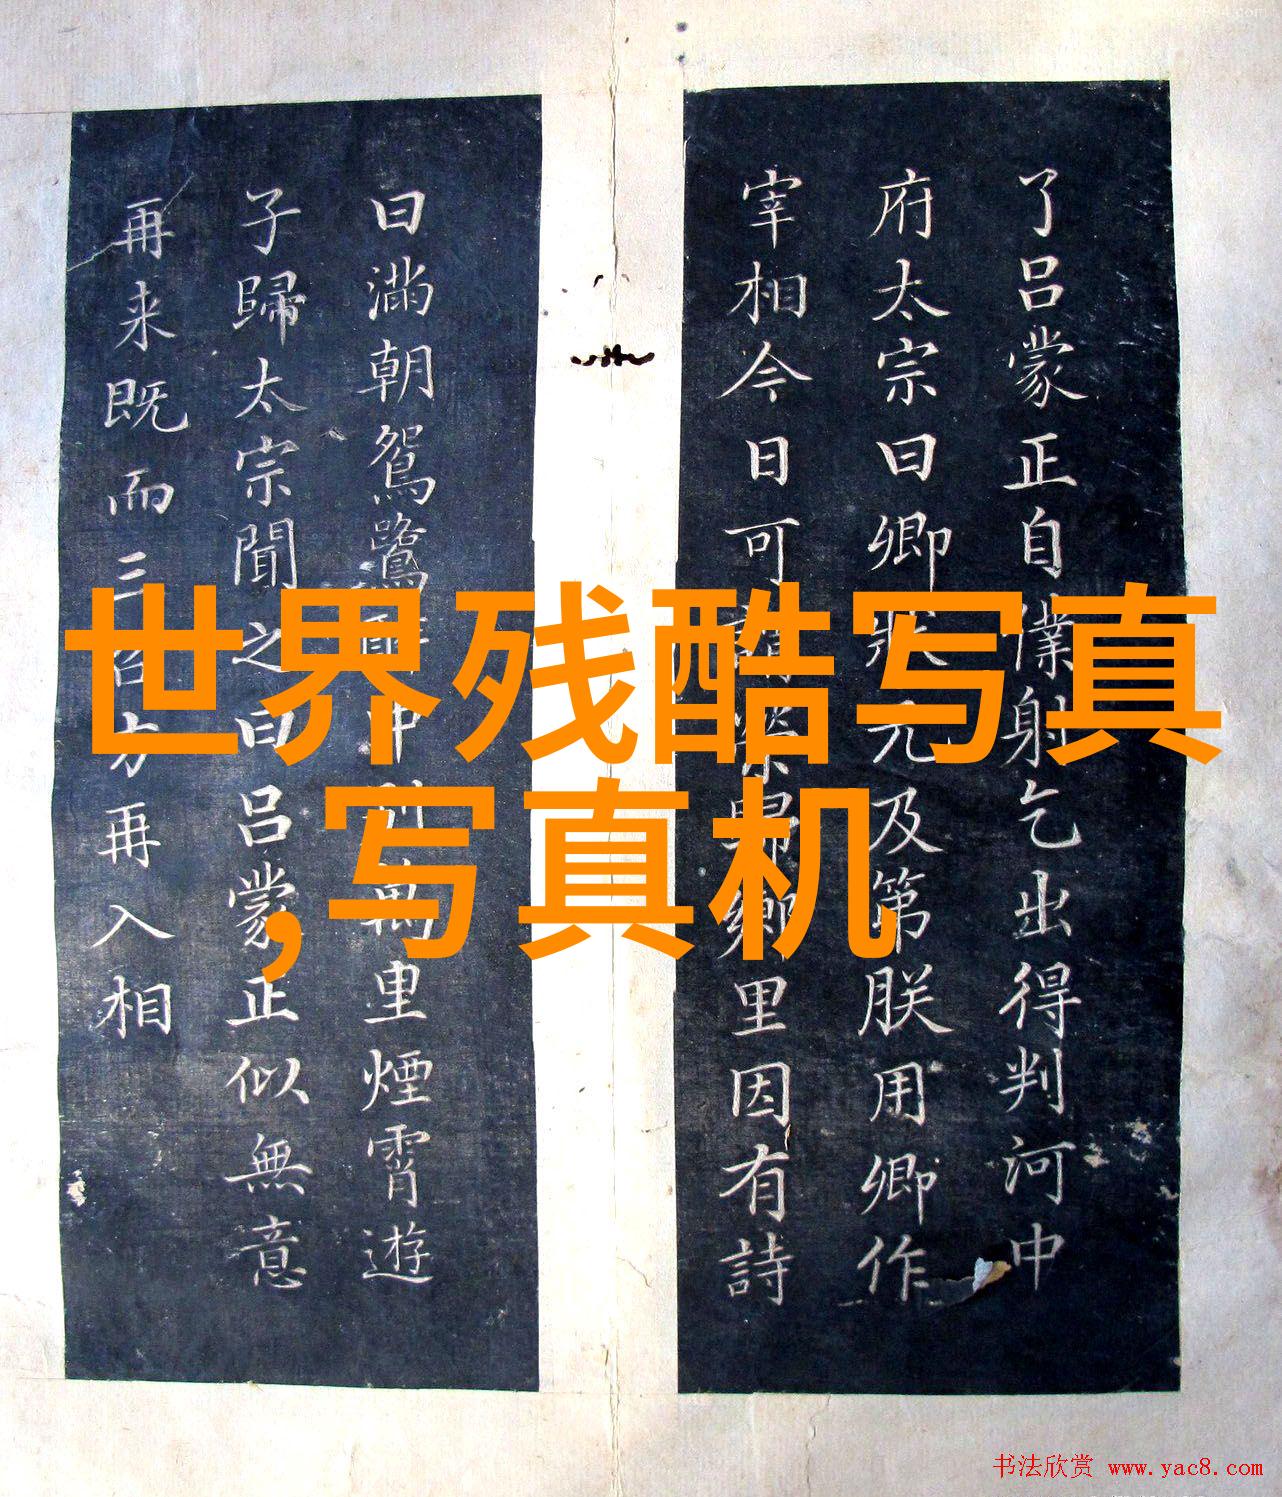 了呂蒙正自僕射乞出得判河中
府太宗曰卿状元及第朕用卿作
宰相今日可謂榮歸鄉里因有詩
曰滿朝鴛鷺醉中別萬里煙霄遊
子歸太宗聞之曰呂蒙正似無意
再来既而三召方再入相
世界残酷写真
,写真机
书法欣赏 www.yac8.com